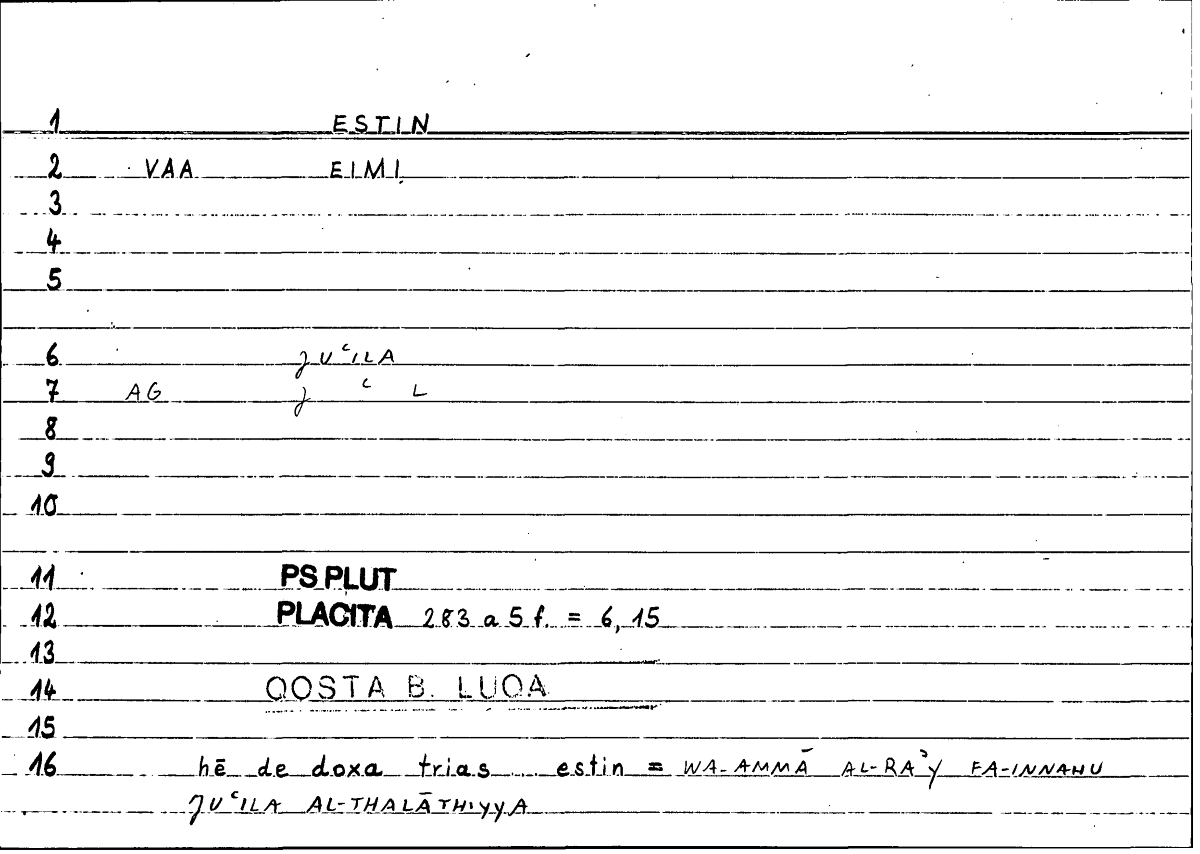 1 ESTIN
2 VAA EIMI
3
4
5
6 JUʿILA
7 AG J ʿ L
8
9
10
11 PS PLUT
12 PLACITA 283 a 5 f. = 6, 15
13
14 QOSTA B. LUQA
15
16 hē de doxa trias estin = WA-AMMĀ AL-RAʾY FA-INNAHU
JUʿILA AL-THALĀTHIYYA